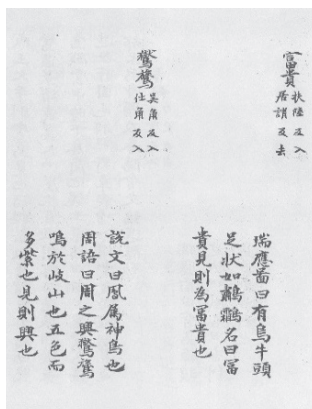 富貴
扶陸反入
居謂反去
瑞應啚曰有鳥牛頭
足状如名曰冨
貴見則為冨貴也
鸑鷟
吳角反入
仕角反入
說文曰鳳属神鳥也
周語曰周之興鸑鷟
鳴於岐山也五色而
多紫也見則興也